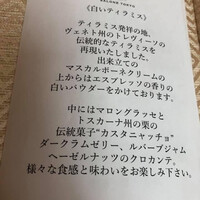 《白いティラミス》
ティラミス発祥の地、
ヴェネト州のトレヴィーソの
伝統的なティラミスを
再現いたしました。
出来立ての
マスカルポーネクリームの
上からはエスプレッソの香りの
白いパウダーをかけております。
中にはマロングラッセと
トスカーナ州の栗の
伝統菓子“カスタニャッチョ”
ダークラムゼリー、ルバーブジャム
ヘーゼルナッツのクロカンテ。
様々な食感と味わいをお楽しみ下さい。